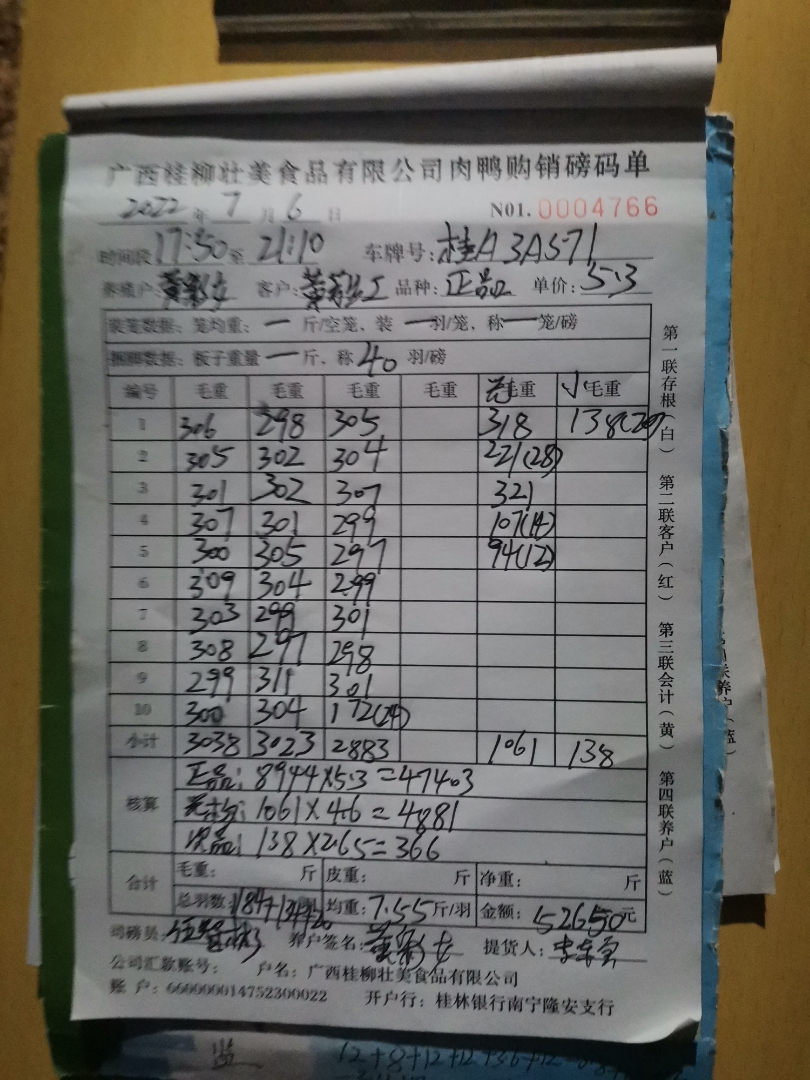 广西桂柳壮美食品有限公司肉鸭购销磅码单
2022 年 7 月 6 日 N01. 0004766
时间段 17:50 至 21:10 车牌号: 桂A3A571
养殖户: 黄彩女 客户: 品种: 正品 单价: 5.3
装笼数据: 笼均重: 一 斤/空笼、装 一 羽/笼、称 一 笼/磅
捆脚数据: 板子重量 一 斤、称 40 羽/磅
编号 毛重 毛重 毛重 毛重 毛重 小毛重
1 306 298 305 318 138(20)
2 305 302 304 221(28)
3 301 302 307 321
4 307 301 299 107(14)
5 300 305 297 94(12)
6 309 304 299
7 303 299 301
8 308 297 298
9 299 311 301
10 300 304 172(24)
小计 3038 3023 2883 1061 138
核算
正品: 8944×5.3=47403
1061×4.6=4881
次品: 138×2.65=366
合计 毛重: 斤 皮重: 斤 净重: 斤
总羽数: 均重: 7.55 斤/羽 金额: 52650 元
司磅员: 养户签名: 黄彩女 提货人:
公司汇款账号: 户名: 广西桂柳壮美食品有限公司
账 户: 660000014752300022 开户行: 桂林银行南宁隆安支行
第一联存根(白) 第二联客户(红) 第三联会计(黄) 第四联养户(蓝)